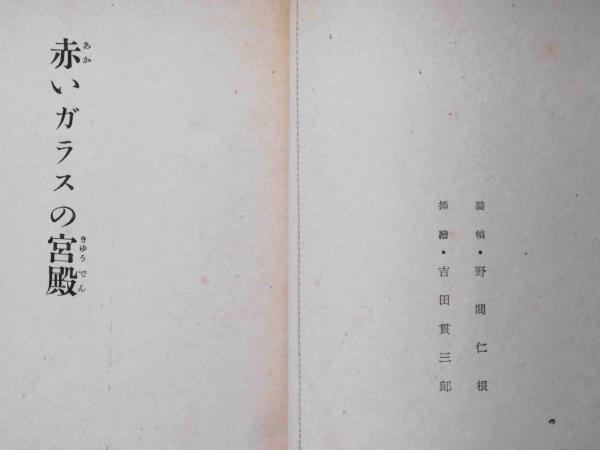 装幀・野間仁根
挿繪・吉田貫三郎
赤いガラスの宮殿
あか
きゆうでん